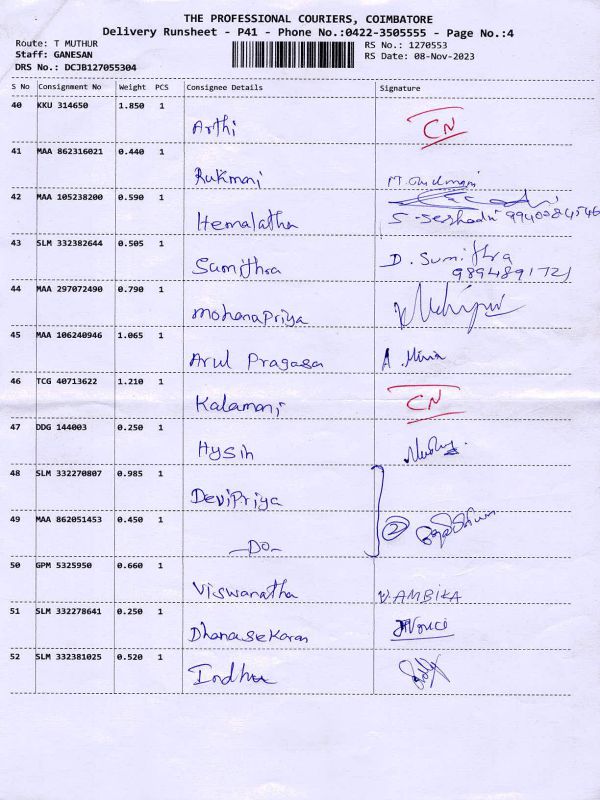 THE PROFESSIONAL COURIERS, COIMBATORE
Delivery Runsheet - P41 - Phone No.:0422-3505555 - Page No.:4
Route: T MUTHUR RS No.: 1270553
Staff: GANESAN RS Date: 08-Nov-2023
DRS No.: DCJB127055304
S No Consignment No Weight PCS Consignee Details Signature
40 KKU 314650 1.850 1
Arthi CN
41 MAA 862316021 0.440 1
Rukmani
42 MAA 105238200 0.590 1
Hemalatha S. Seshadri 9940984546
43 SLM 332382644 0.505 1
Sumithra D. Sumithra
9894891721
44 MAA 297072490 0.790 1
MohanaPriya
45 MAA 106240946 1.065 1
Arul Pragasa A.
46 TCG 40713622 1.210 1
Kalamani CN
47 DDG 144003 0.250 1
Hysin
48 SLM 332270807 0.985 1
DeviPriya
49 MAA 862051453 0.450 1
-DO- 2
50 GPM 5325950 0.660 1
Viswanatha V. AMBIKA
51 SLM 332278641 0.250 1
Dhanasekaran
52 SLM 332381025 0.520 1
Indhu